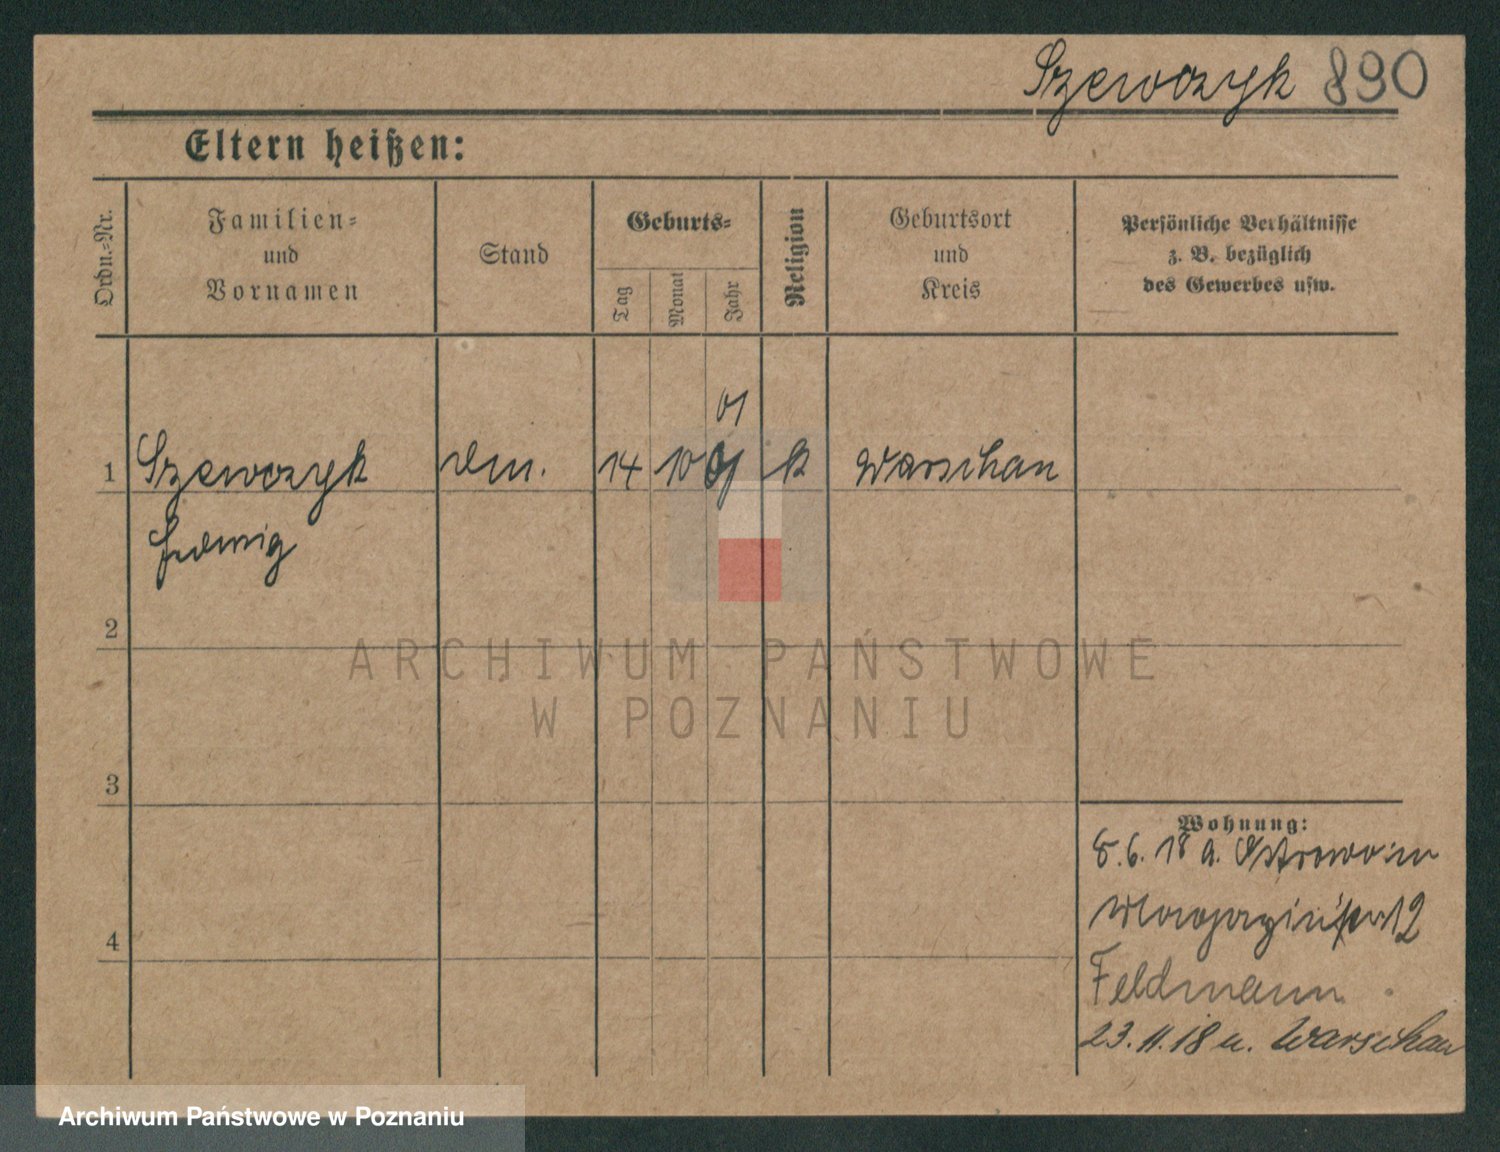 Szewczyk 890
Eltern heißen:
Ordn.=Nr.
Familien=
und
Vornamen
Stand
Geburts=
Tag
Monat
Jahr
Religion
Geburtsort
und
Kreis
Persönliche Verhältnisse
z. B. bezüglich
des Gewerbes usw.
01
1 Szewczyk 14 10 k Warschau
Ludwig
2
3
4
ARCHIWUM PAŃSTWOWE
W POZNANIU
Wohnung:
8.6.18 a. Ostrowo
12
Feldmann
23.11.18 u. Warschau
Archiwum Państwowe w Poznaniu